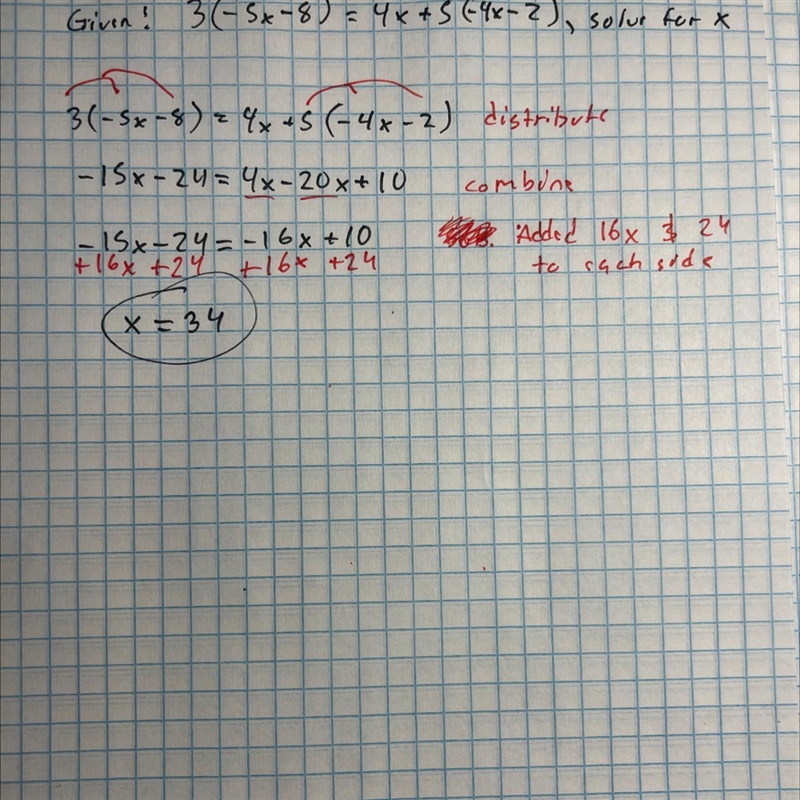 Given! 3(-5x-8) = 4x+5(-4x-2), solve for x
3(-5x-8) = 4x+5(-4x-2) distribute
-15x-24 = 4x-20x+10 combine
-15x-24 = -16x+10 Added 16x & 24
+16x +24 +16x +24 to each side
x = 34